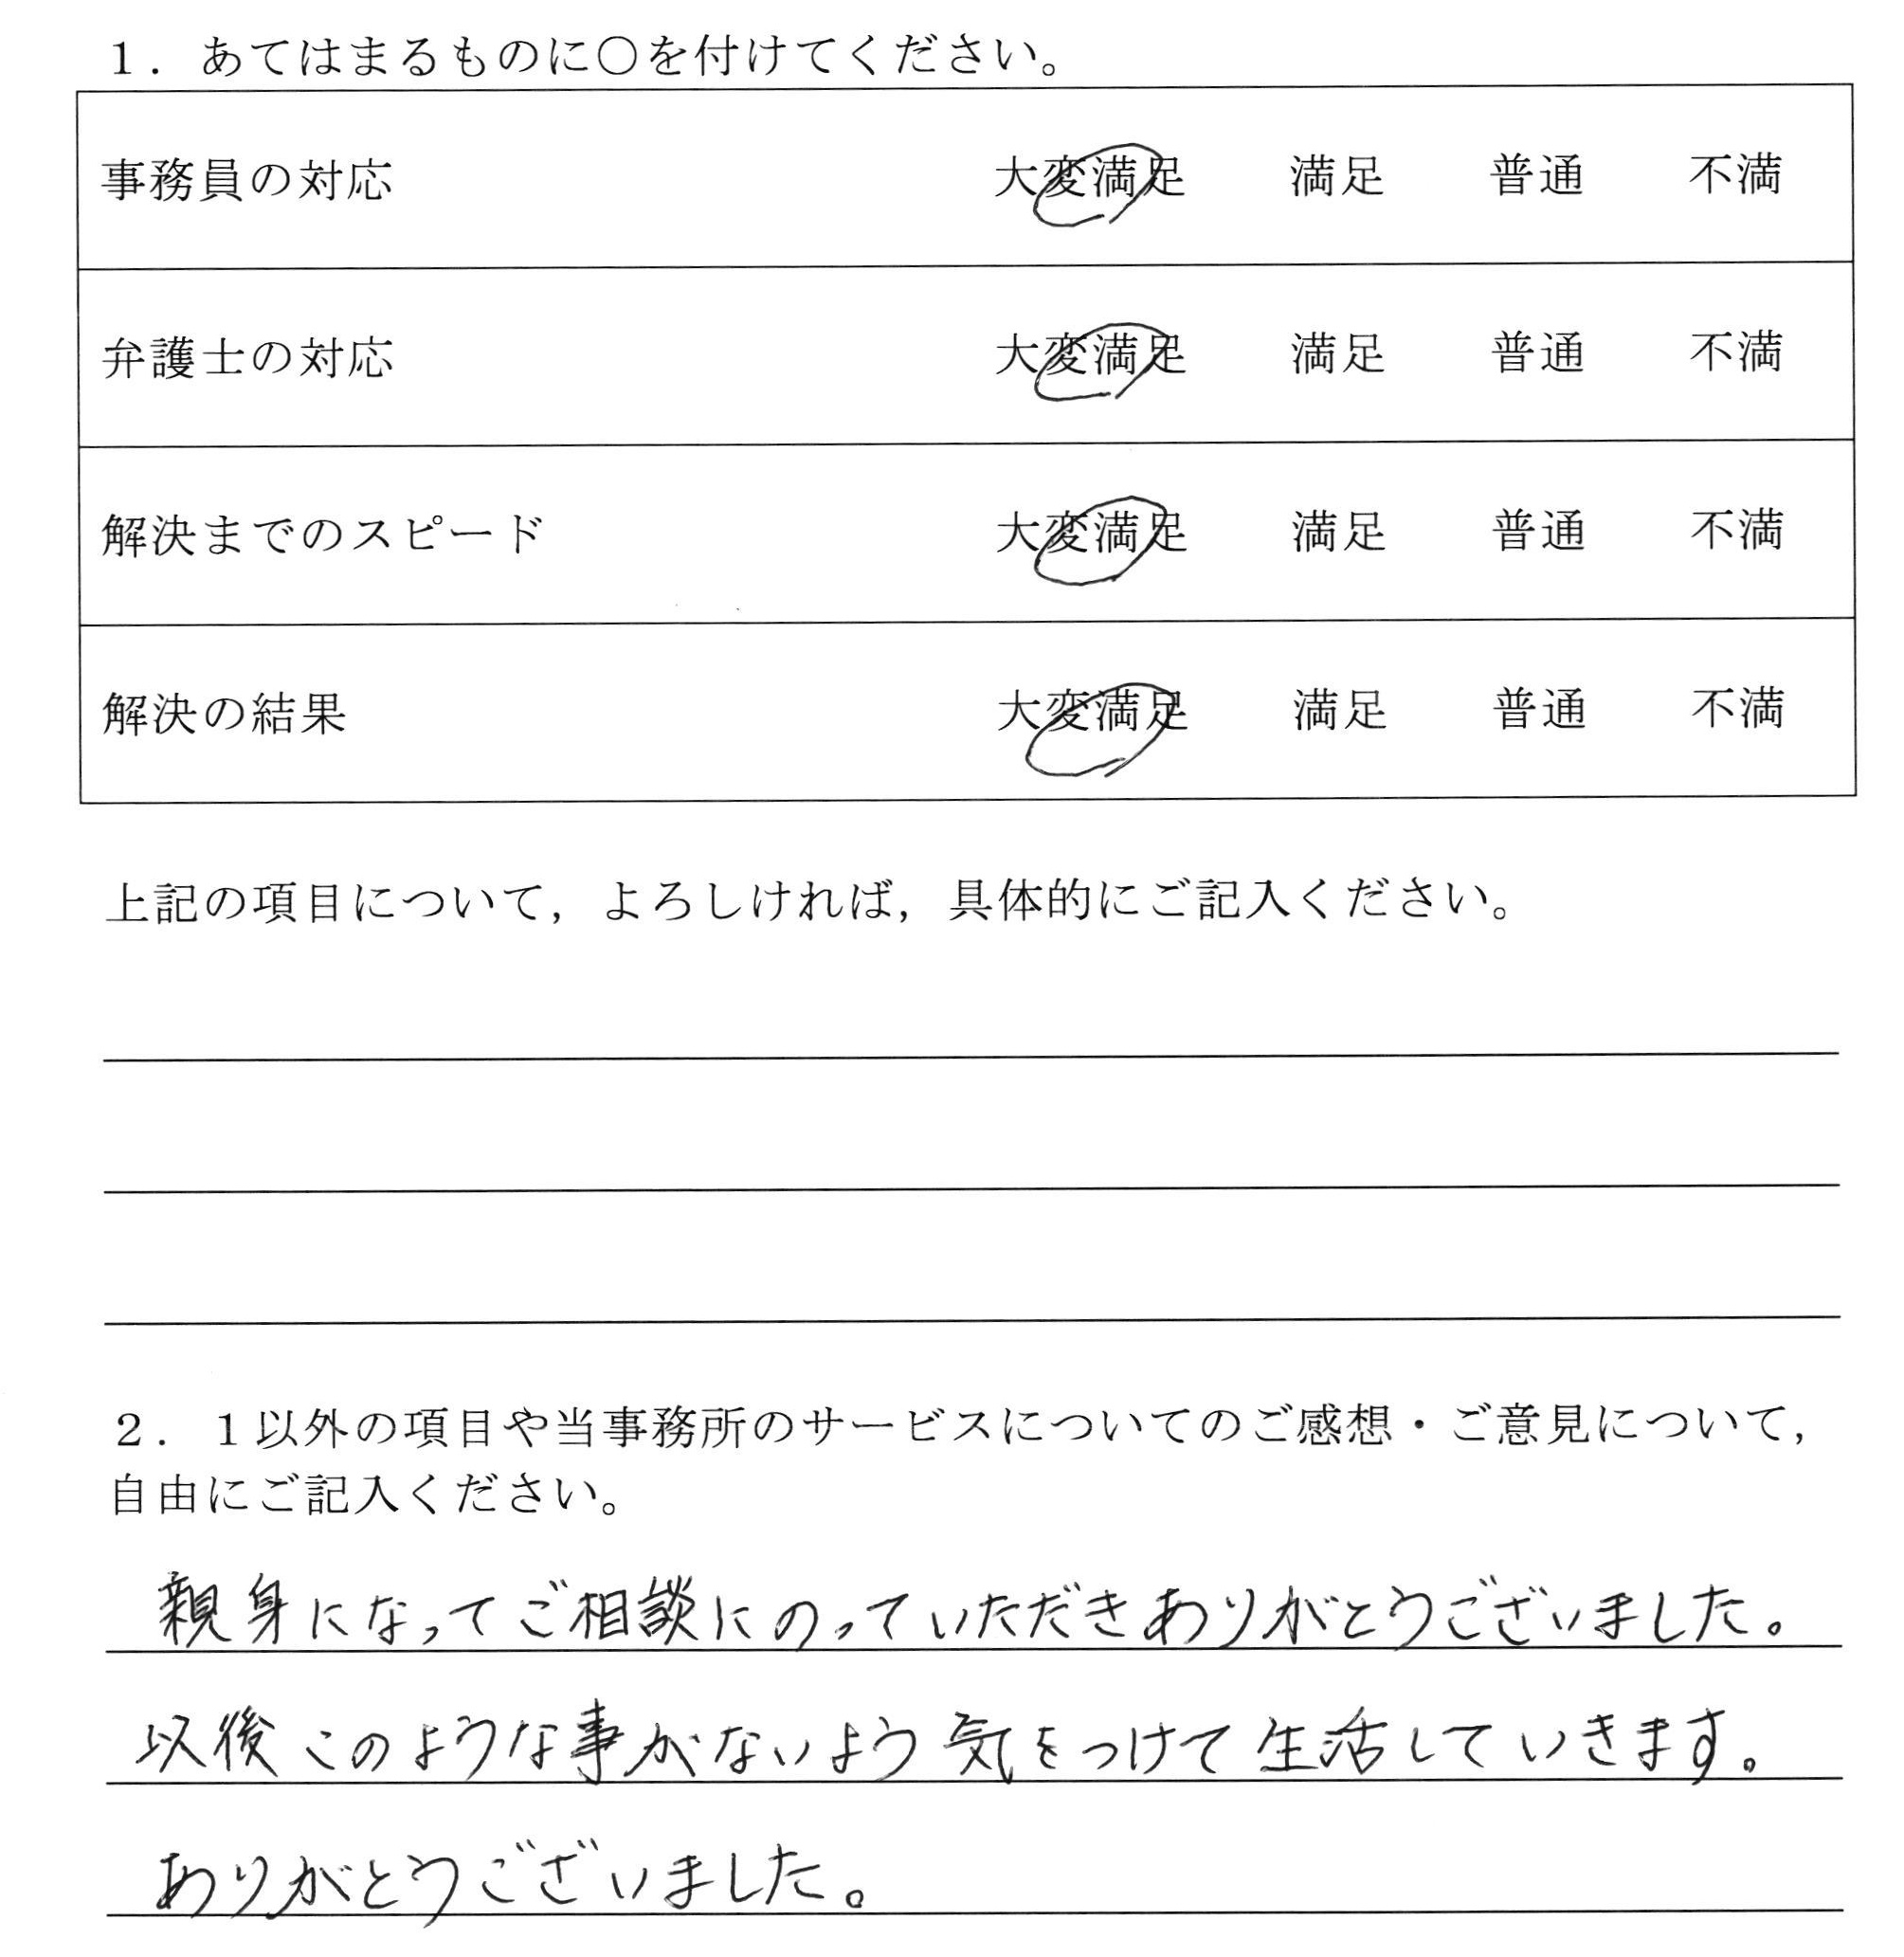 １．あてはまるものに○を付けてください。
事務員の対応　大変満足　満足　普通　不満
弁護士の対応　大変満足　満足　普通　不満
解決までのスピード　大変満足　満足　普通　不満
解決の結果　大変満足　満足　普通　不満
上記の項目について，よろしければ，具体的にご記入ください。
２．１以外の項目や当事務所のサービスについてのご感想・ご意見について，
自由にご記入ください。
親身になってご相談にのっていただきありがとうございました。
以後このような事がないよう気をつけて生活していきます。
ありがとうございました。